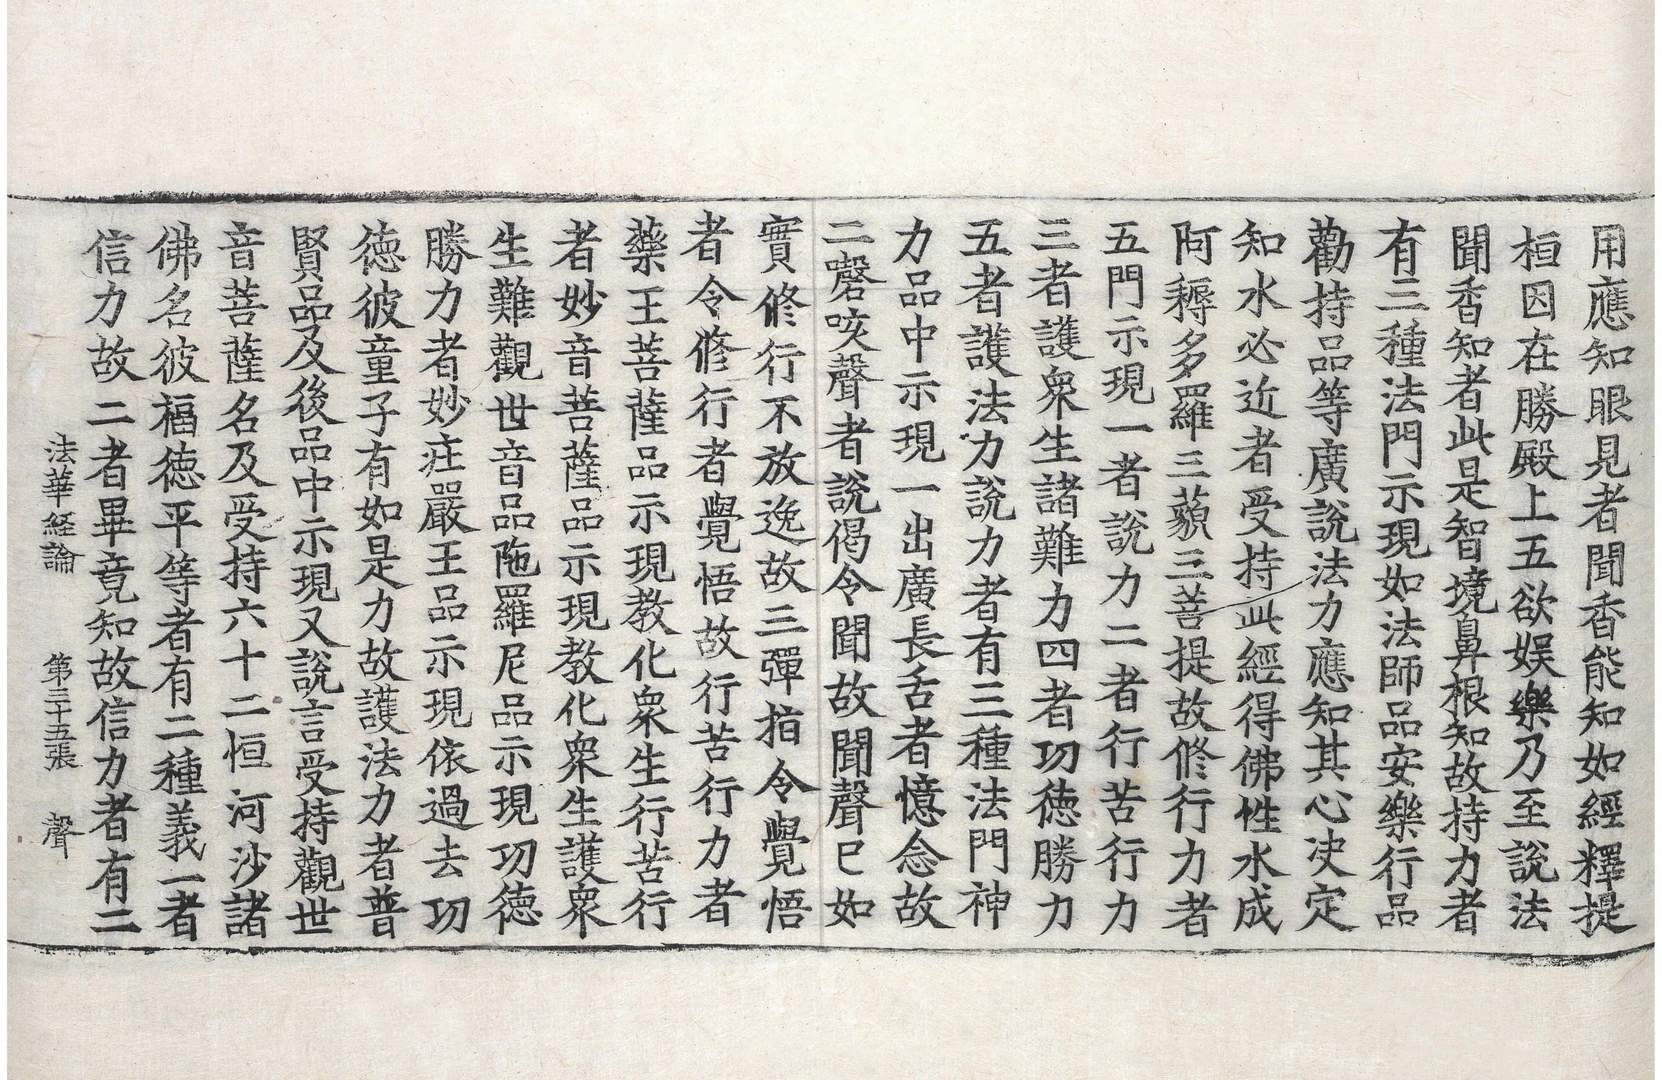 用應知眼見者聞香能知如經釋提
桓因在勝殿上五欲娛樂乃至說法
聞香知者此是智境鼻根知故持力者
有三種法門示現如法師品安樂行品
勸持品等廣說法力應知其心决定
知水必近者受持此經得佛性水成
阿耨多羅三藐三菩提故修行力者
五門示現一者說力二者行苦行力
三者護衆生諸難力四者功徳勝力
五者護法力說力者有三種法門神
力品中示現一出廣長舌者憶念故
二謦咳聲者說偈令聞故聞聲已如
實修行不放逸故三彈指令覺悟
者令修行者覺悟故行苦行力者
藥王菩薩品示現教化衆生行苦行
者妙音菩薩品示現教化衆生護衆
生難觀世音品陁羅尼品示現功徳
勝力者妙荘嚴王品示現依過去功
徳彼童子有如是力故護法力者普
賢品及後品中示現又說言受持觀世
音菩薩名及受持六十二恒河沙諸
佛名彼福徳平等者有二種義一者
信力故二者畢竟知故信力者有二
法華経論 第三十五張 聲